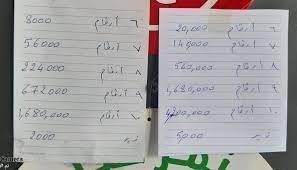 ٦ أرقام 20,000
٧ أرقام 140,000
٨ أرقام 560,000
٩ أرقام 1,680,000
١٠ أرقام 4,200,000
5,000
٦ أرقام 8000
٧ أرقام 56000
٨ أرقام 224000
٩ أرقام 672000
١٠ أرقام 1,680,000
2000